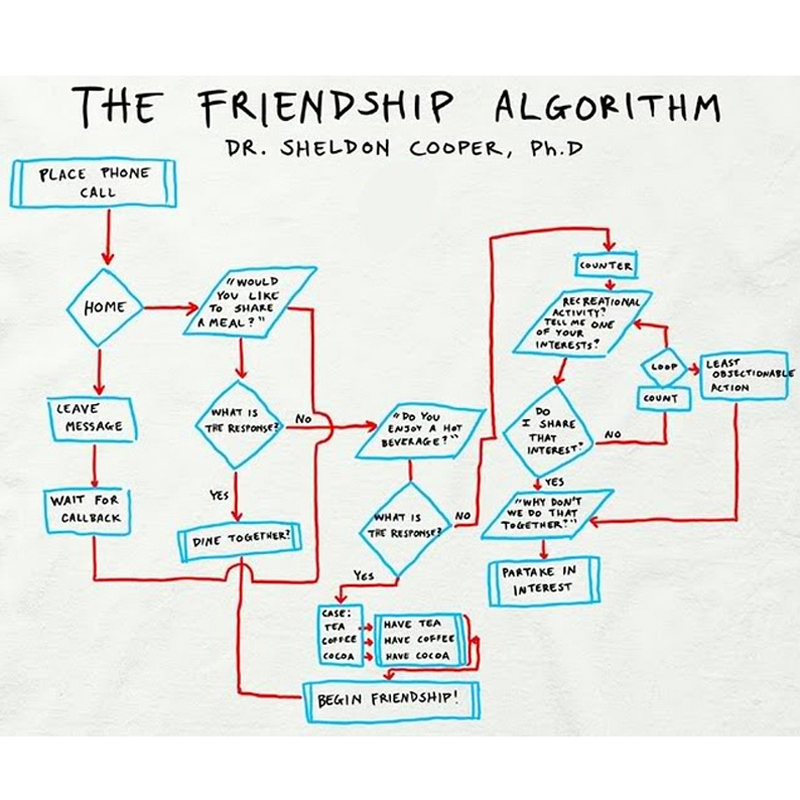 THE FRIENDSHIP ALGORITHM
DR. SHELDON COOPER, Ph.D
PLACE PHONE
CALL
HOME
"WOULD
YOU LIKE
TO SHARE
A MEAL?"
LEAVE
MESSAGE
WAIT FOR
CALLBACK
WHAT IS
THE RESPONSE?
NO
YES
DINE TOGETHER?
"DO YOU
ENJOY A HOT
BEVERAGE?"
WHAT IS
THE RESPONSE?
NO
Yes
CASE:
TEA
COFFEE
COCOA
HAVE TEA
HAVE COFFEE
HAVE COCOA
BEGIN FRIENDSHIP!
COUNTER
RECREATIONAL
ACTIVITY?
TELL ME ONE
OF YOUR
INTERESTS?
LOOP
COUNT
LEAST
OBJECTIONABLE
ACTION
DO
I SHARE
THAT
INTEREST?
NO
YES
"WHY DON'T
WE DO THAT
TOGETHER?"
PARTAKE IN
INTEREST